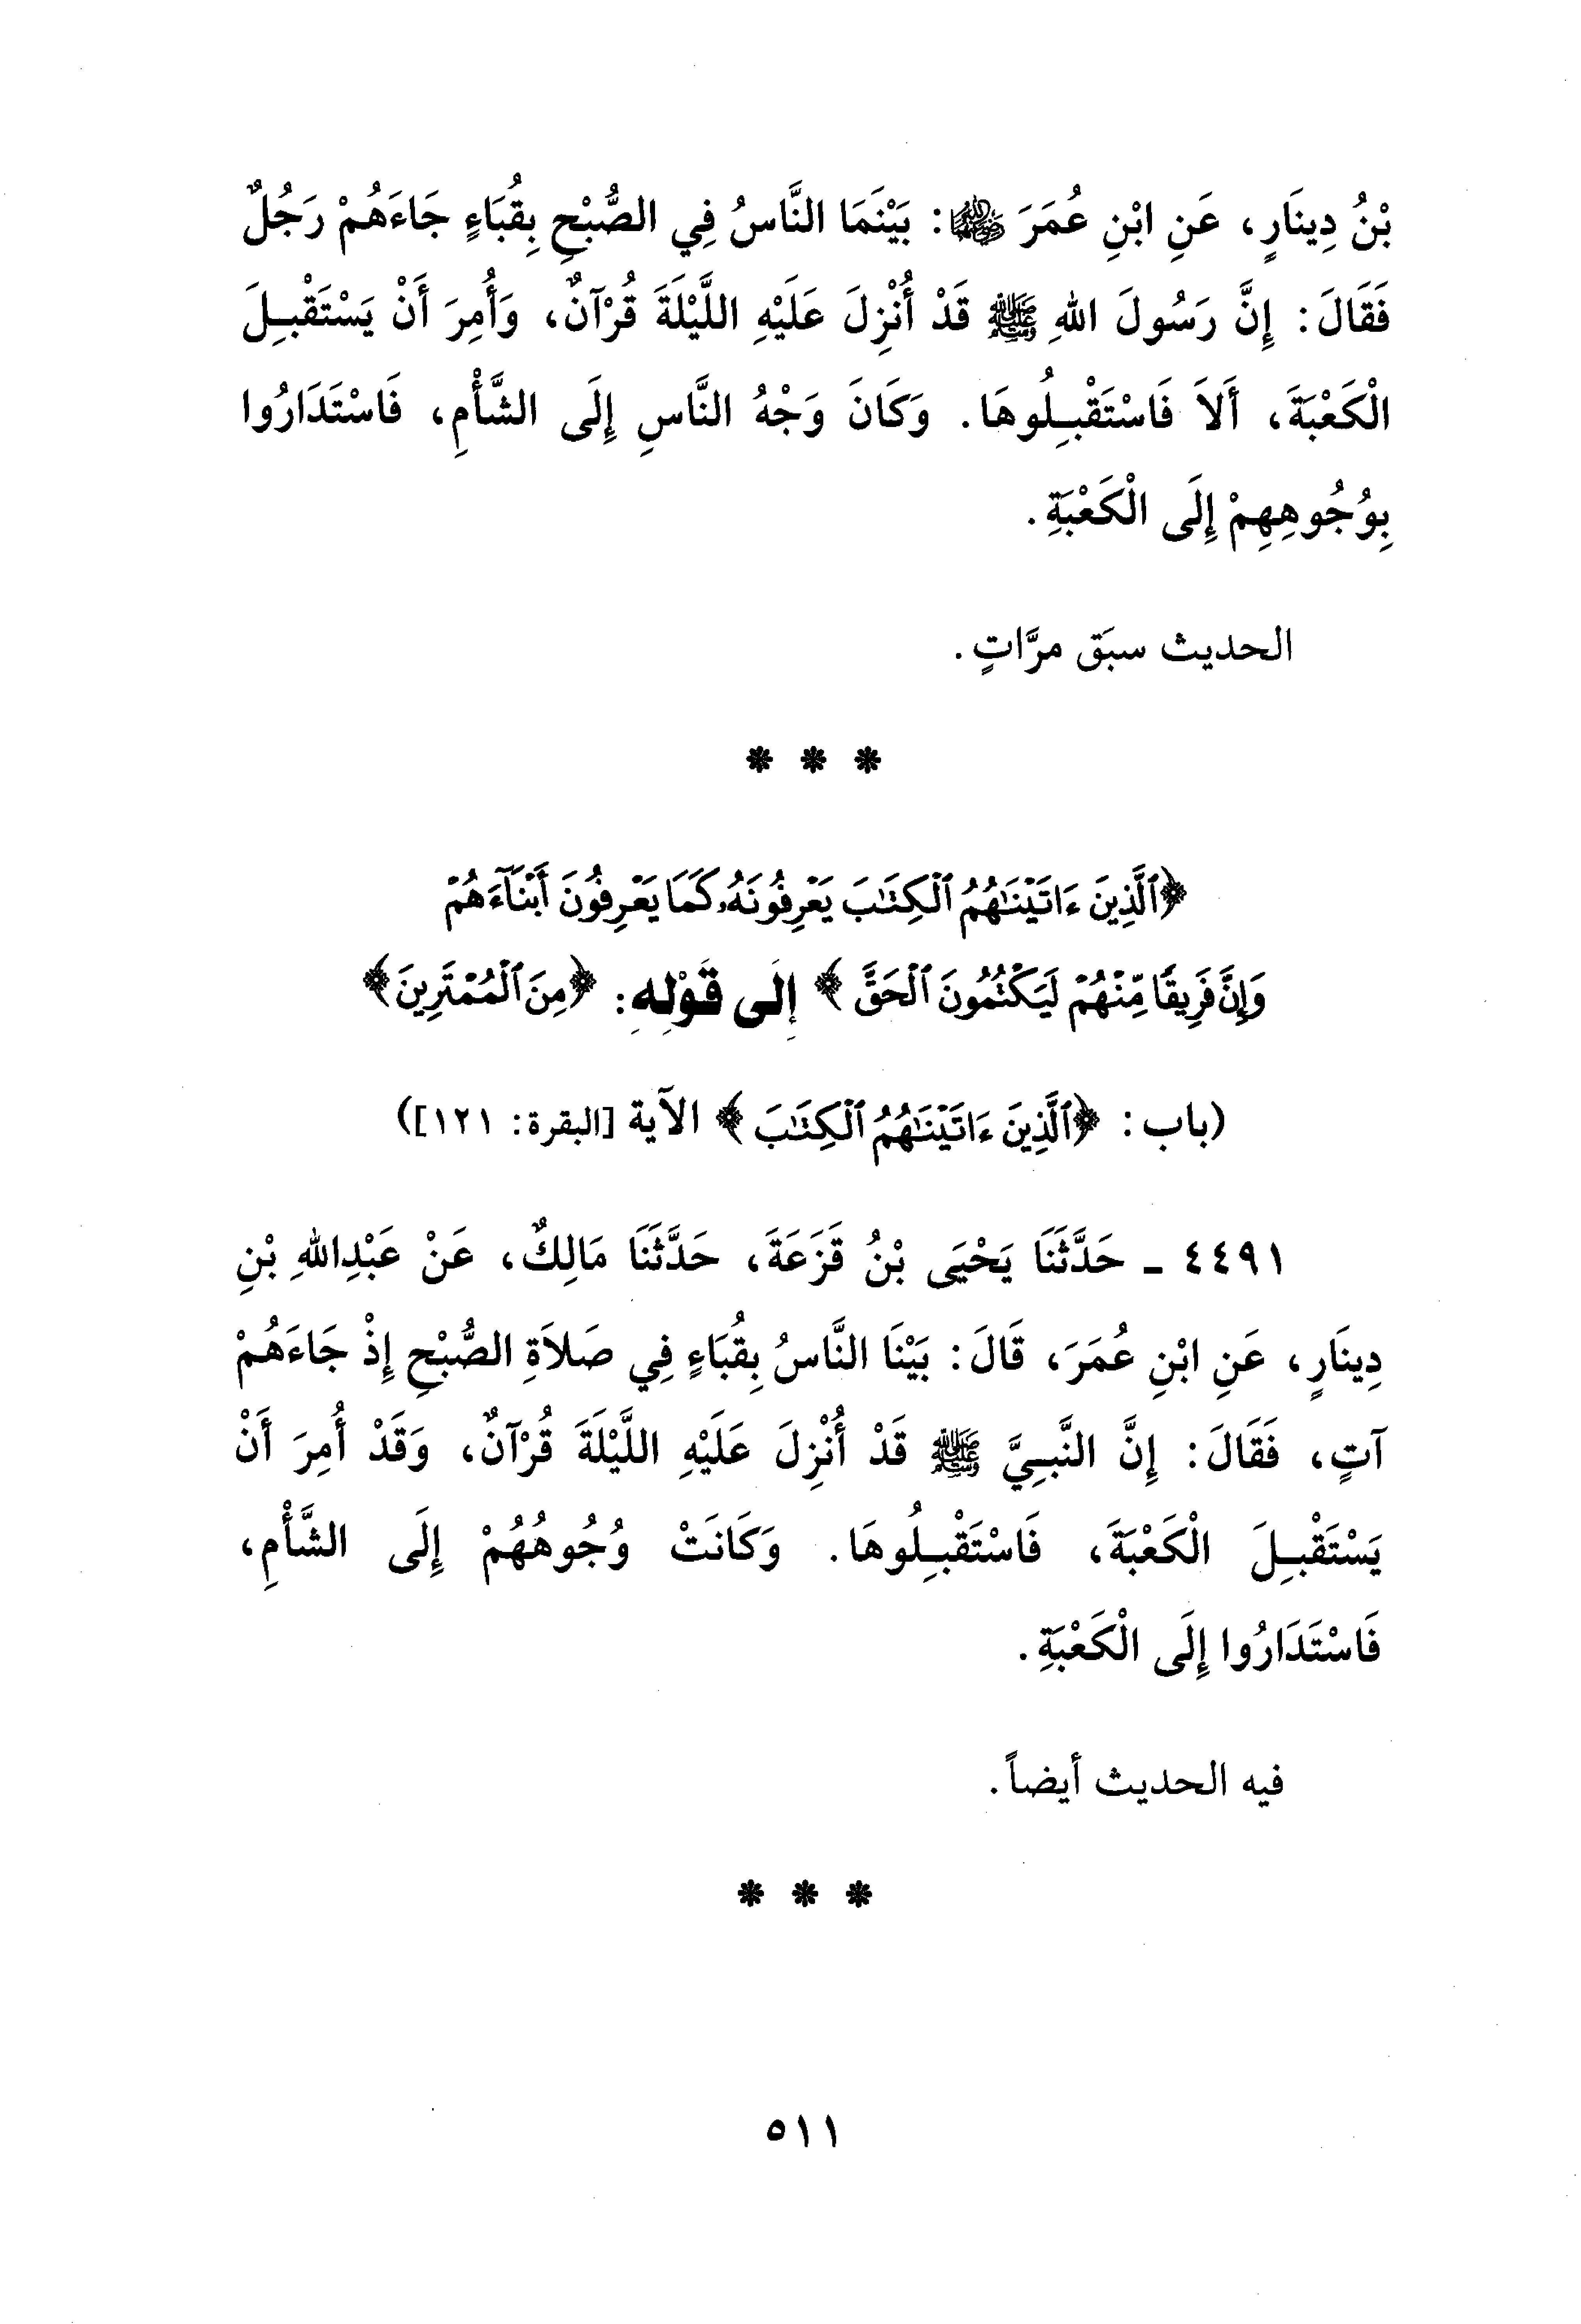 بْنُ دِينَارٍ، عَنِ ابْنِ عُمَرَ ﵄: بَيْنَمَا النَّاسُ فِي الصُّبْحِ بِقُبَاءٍ جَاءَهُمْ رَجُلٌ
فَقَالَ: إِنَّ رَسُولَ اللهِ ﷺ قَدْ أُنْزِلَ عَلَيْهِ اللَّيْلَةَ قُرْآنٌ، وَأُمِرَ أَنْ يَسْتَقْبِلَ
الْكَعْبَةَ، أَلاَ فَاسْتَقْبِلُوهَا. وَكَانَ وَجْهُ النَّاسِ إِلَى الشَّأْمِ، فَاسْتَدَارُوا
بِوُجُوهِهِمْ إِلَى الْكَعْبَةِ.
الحديث سبَق مرَّاتٍ.
* * *
﴿ٱلَّذِينَ ءَاتَيْنَٰهُمُ ٱلْكِتَٰبَ يَعْرِفُونَهُۥ كَمَا يَعْرِفُونَ أَبْنَآءَهُمْ
وَإِنَّ فَرِيقًا مِّنْهُمْ لَيَكْتُمُونَ ٱلْحَقَّ﴾ إِلَى قَوْلِهِ: ﴿مِنَ ٱلْمُمْتَرِينَ﴾
(باب: ﴿ٱلَّذِينَ ءَاتَيْنَٰهُمُ ٱلْكِتَٰبَ﴾ الآية [البقرة: ١٢١])
٤٤٩١ - حَدَّثَنَا يَحْيَى بْنُ قَزَعَةَ، حَدَّثَنَا مَالِكٌ، عَنْ عَبْدِاللهِ بْنِ
دِينَارٍ، عَنِ ابْنِ عُمَرَ، قَالَ: بَيْنَا النَّاسُ بِقُبَاءٍ فِي صَلاَةِ الصُّبْحِ إِذْ جَاءَهُمْ
آتٍ، فَقَالَ: إِنَّ النَّبِيَّ ﷺ قَدْ أُنْزِلَ عَلَيْهِ اللَّيْلَةَ قُرْآنٌ، وَقَدْ أُمِرَ أَنْ
يَسْتَقْبِلَ الْكَعْبَةَ، فَاسْتَقْبِلُوهَا. وَكَانَتْ وُجُوهُهُمْ إِلَى الشَّأْمِ،
فَاسْتَدَارُوا إِلَى الْكَعْبَةِ.
فيه الحديث أيضاً.
* * *
٥١١